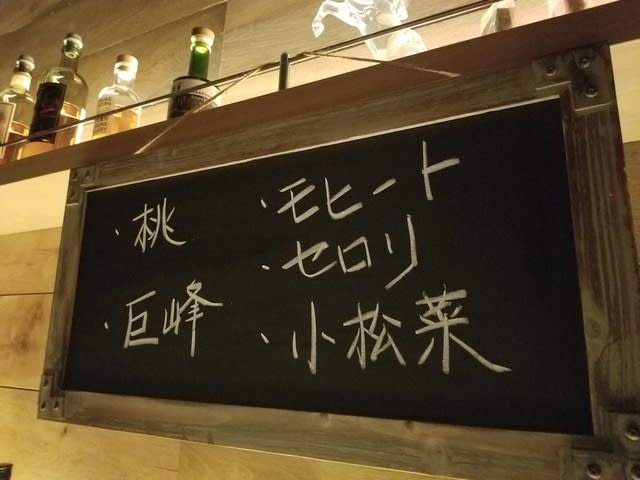 ・桃
・巨峰
・モヒート
・セロリ
・小松菜